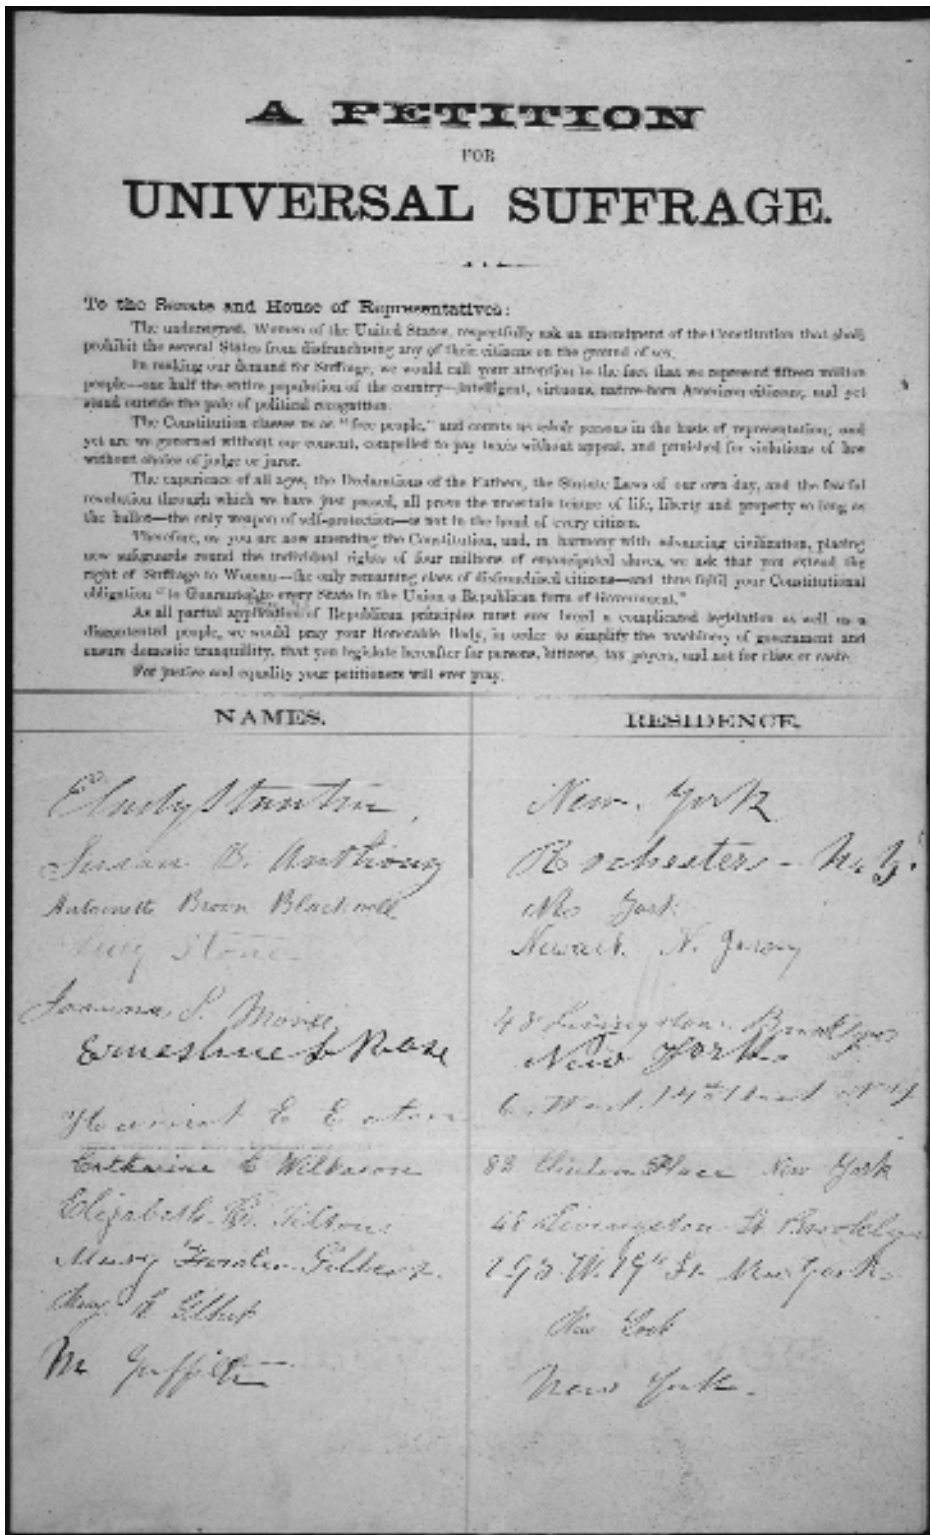 A PETITION
FOR
UNIVERSAL SUFFRAGE.
To the Senate and House of Representatives:
The undersigned, Women of the United States, respectfully ask an amendment of the Constitution that shall
prohibit the several States from disfranchising any of their citizens on the ground of sex.
In making our demand for Suffrage, we would call your attention to the fact that we represent fifteen million
people—one half the entire population of the country—intelligent, virtuous, native-born American citizens; and yet
stand outside the pale of political recognition.
The Constitution classes us as "free people," and counts us whole persons in the basis of representation; and
yet are we governed without our consent, compelled to pay taxes without appeal, and punished for violations of law
without choice of judge or juror.
The experience of all ages, the Declarations of the Fathers, the Statute Laws of our own day, and the fearful
revolution through which we have just passed, all prove the uncertain tenure of life, liberty and property so long as
the ballot—the only weapon of self-protection—is not in the hand of every citizen.
Therefore, as you are now amending the Constitution, and, in harmony with advancing civilization, placing
new safeguards round the individual rights of four millions of emancipated slaves, we ask that you extend the
right of Suffrage to Woman—the only remaining class of disfranchised citizens—and thus fulfil your Constitutional
obligation "to Guarantee to every State in the Union a Republican form of Government."
As all partial application of Republican principles must ever breed a complicated legislation as well as a
discontented people, we would pray your Honorable Body, in order to simplify the machinery of government and
ensure domestic tranquillity, that you legislate hereafter for persons, citizens, tax-payers, and not for class or caste.
For justice and equality your petitioners will ever pray.
NAMES. RESIDENCE.
E Cady Stanton, New York
Susan B. Anthony Rochester - N. Y.
Antoinette Brown Blackwell New York
Lucy Stone Newark N. Jersey
Joanna S. Morse 48 Livingston. Brooklyn
Ernestine L Rose New York
Harriet E Eaton 6. West. 14th Street N. Y
Catharine C Wilkeson 83 Clinton Place New York
Elizabeth R. Tilton 48 Livingston St Brooklyn
Mary Fowler Gilbert 293 W. 19th St. New York
Mary E Gilbert New York
M Griffith New York.